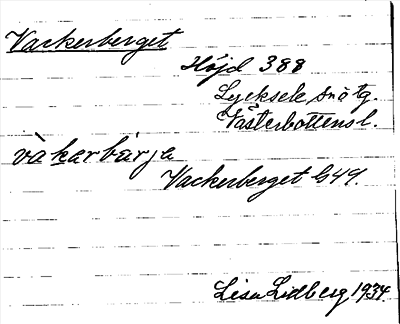 Vackerberget
Höjd 388
Lycksele snätg.
Västerbottensl.
vàkerbärje
Vackerberget G49.
Lisa Lidberg 1934.